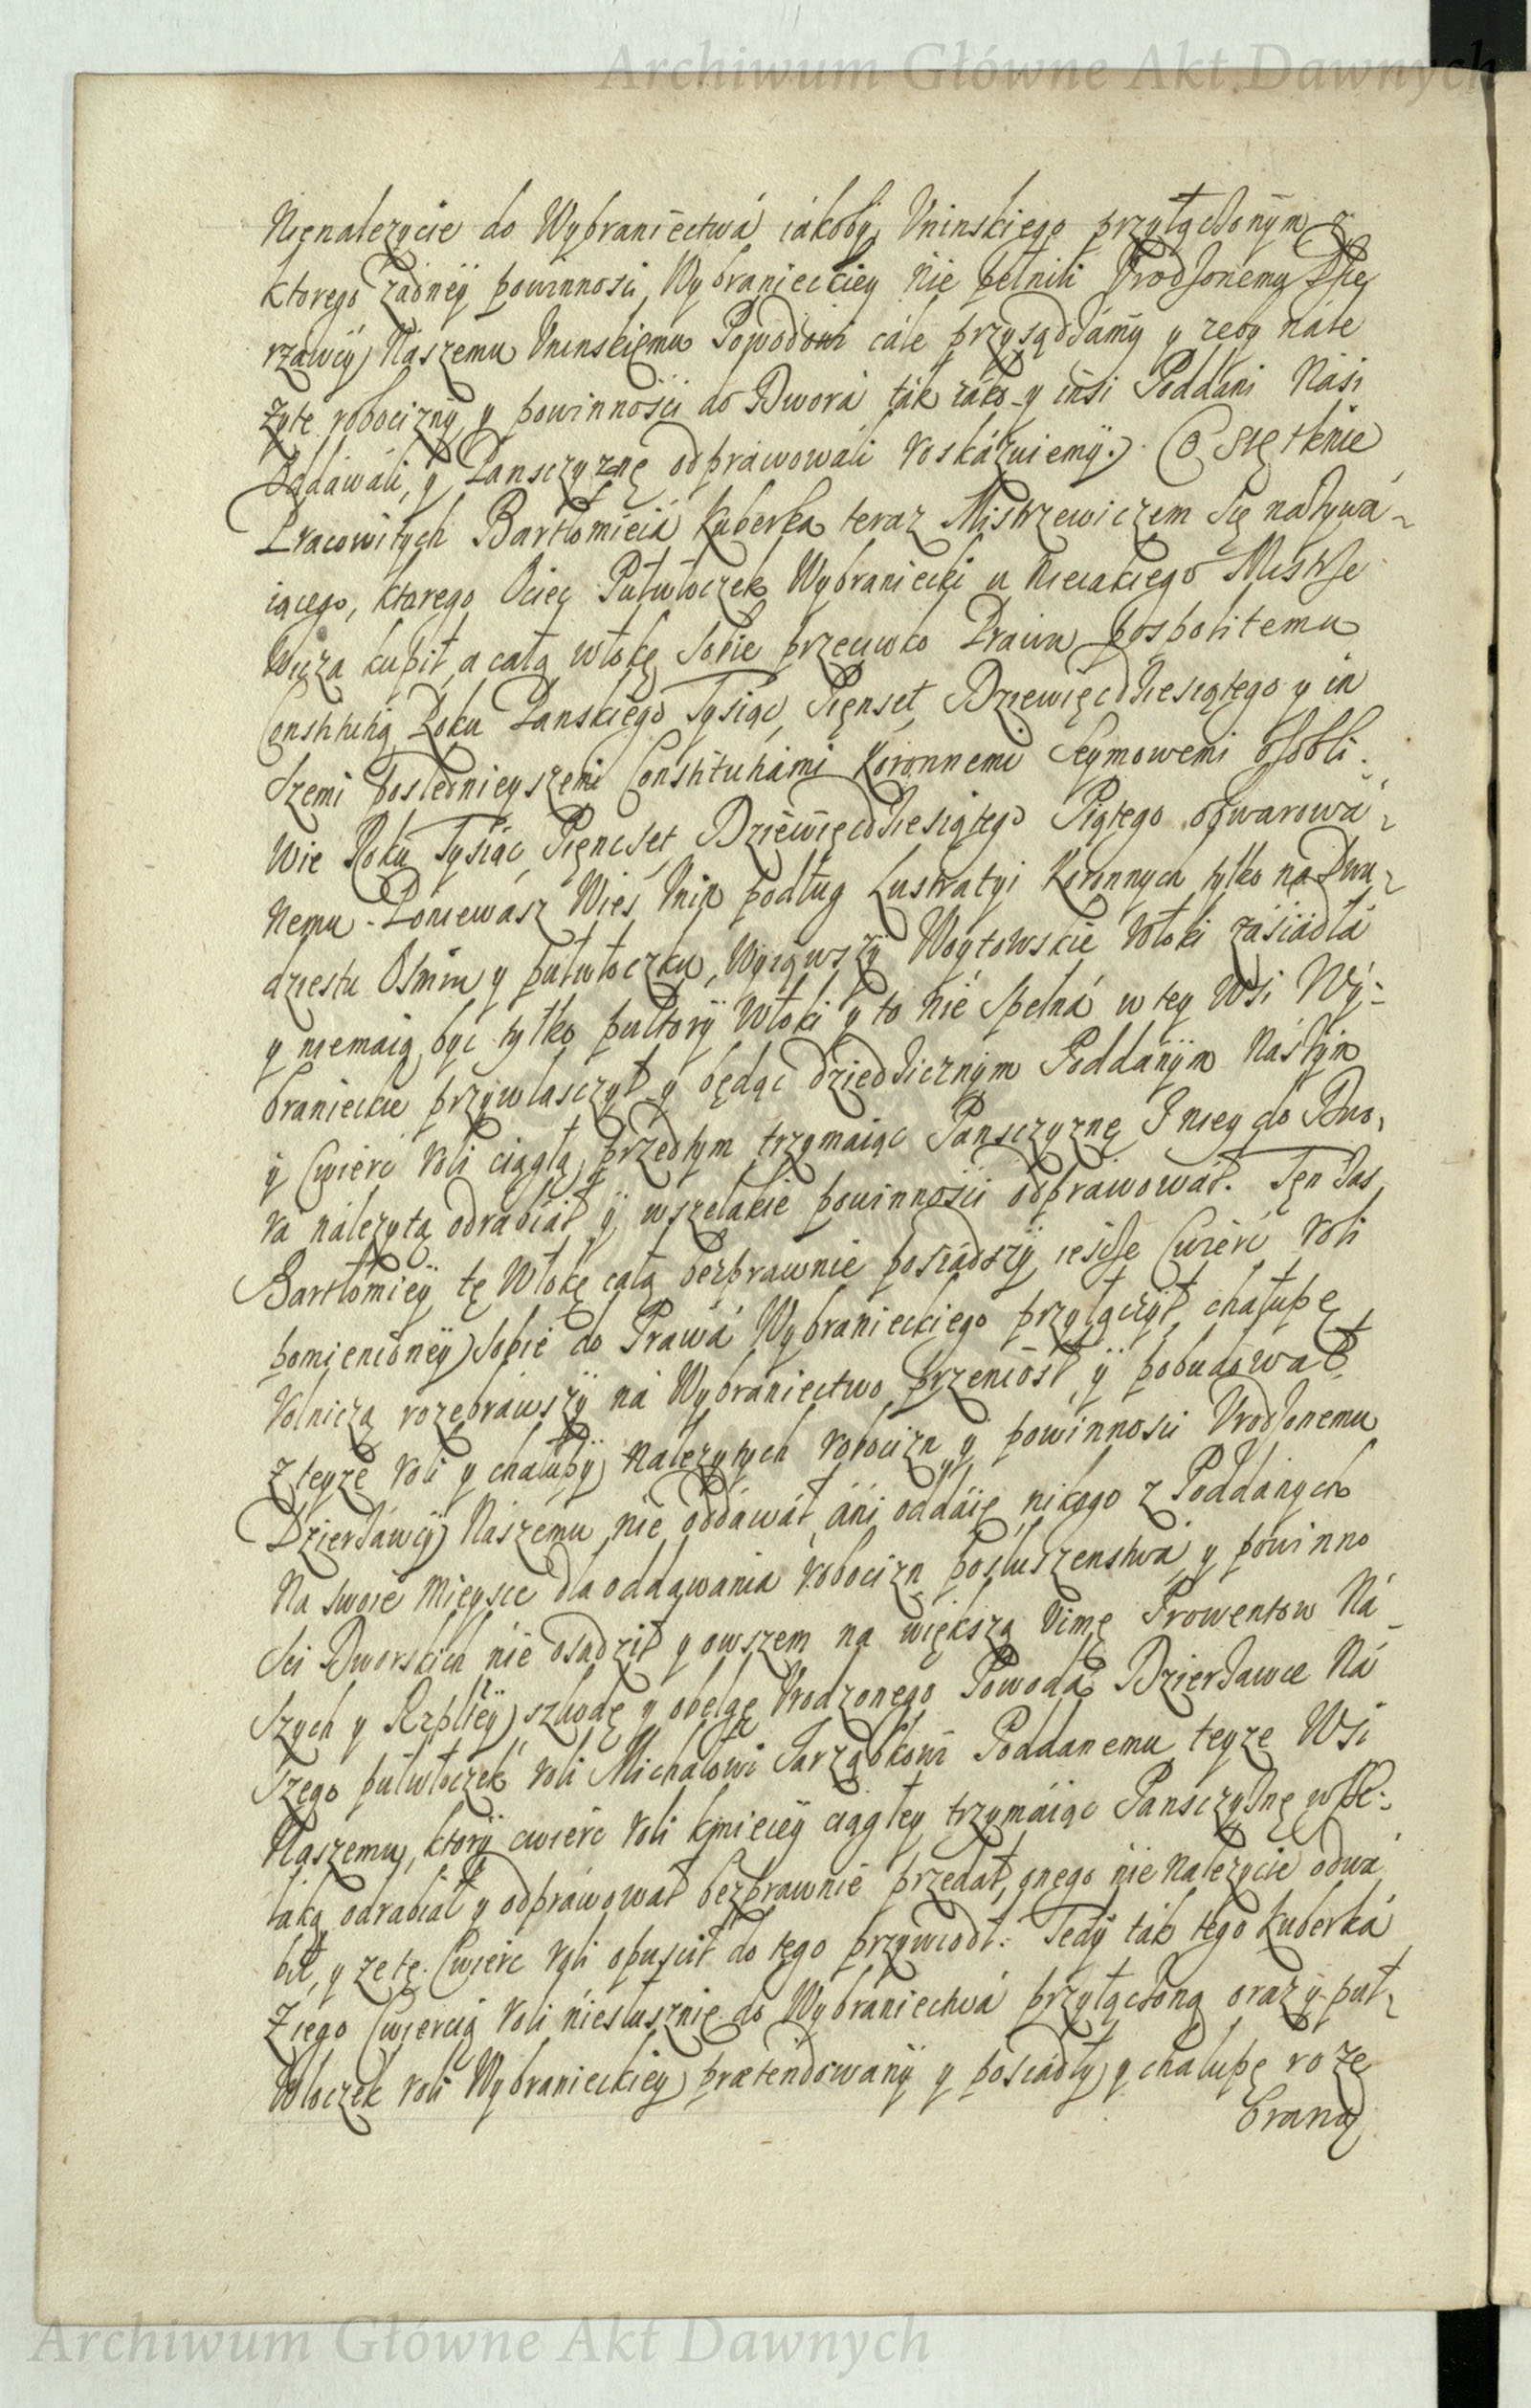 Archiwum Główne Akt Dawnych
Nienalezycie do Wybraniectwá iákoby Vninskiego przyłączonym z
ktorego żadney powinnosci Wybranieckiey nie pełnili Vrodzonemu Dzie
rzawcy Naszemu Vninskiemu Powodowi cále przysądzámy y zeby nále
żyte robocizny y powinnośći do Dworá ták iáko y inśi Poddáni Náśi
Oddáwáli, y Panszczyznę odpráwowáli roskázuiemy. Co się tknie
Pracowitych Bartłomieiá Kuberka teraz Mistrzewiczem się názywá-
iącego, ktorego Ociec Pułwłoczek Wybraniecki u Nieiakiego Mistrze
wicza kupił, a całą włokę sobie przeciwko Prawu pospolitemu
Constitucią Roku Panskiego Tysiąc Pięnset Dziewięćdziesiątego y in
szemi poslednieyszemi Constitutiámi Koronnemi Seymowemi osobli-
wie Roku Tysiąc Pięncset Dziewięćdziesiątego Piątego obwarowá-
nemu. Poniewasz Wieś Vnin podług Lustratyi Koronnych tylko na Dwu-
dziestu Ośmiu y pułwłoczku, Wyiąwszy Woytowskie Włoki zásiádłá
y niemaią być tylko pułtory Włoki y to nie spełná w tey Wśi Wy-
branieckie przywłaszczył y będąc dziedzicznym Poddánym Nászym
y Cwierć Roli ciągłą przedtym trzymaiąc Panszczyznę z niey do Dwo-
rá nálezytą odrabiał y wszelakie powinnośći odpráwował. Ten zas
Bartłomiey tę Włokę całą bezprawnie posiadszy ieszcze Cwierć Roli
pomienioney sobie do Prawá Wybranieckiego przyłączył, chałupę
Rolniczą rozebrawszy ná Wybraniectwo przeniosł y pobudował
z teyze Roli y chałupy nalezytych robocizn y powinnosci Vrodzonemu
Dzierżáwcy Naszemu nie oddáwáł áni oddáie, nikogo z Poddánych
Na swoie Mieysce dla oddawania Robocizn posłuszenstwá y powinno
sci Dworskich nie osadził y owszem na większą Vimę Prowentow Ná-
szych y Rzpltey szkodę y obelgę Vrodzonego Powodá Dzierżawce Ná
szego pułwłoczek roli Michałowi Jarząbkowi Poddanemu teyze Wśi
Naszemu, ktory cwierć Roli kmieciey ciągłey trzymáiąc Panszczyznę wsze-
laką odrabiał y odpráwował bezprawnie przedał, onego nie należycie odwá
bił, y ze tę Cwierc Roli opuścił do tego przywiodł: Tedy ták tego Kuberká
z iego Cwiercią Roli niesłusznie do Wybraniectwá przyłączoną oraz y puł-
włoczek roli Wybranieckiey prætendowány y pośiádły y chałupę roze
braną
Archiwum Główne Akt Dawnych